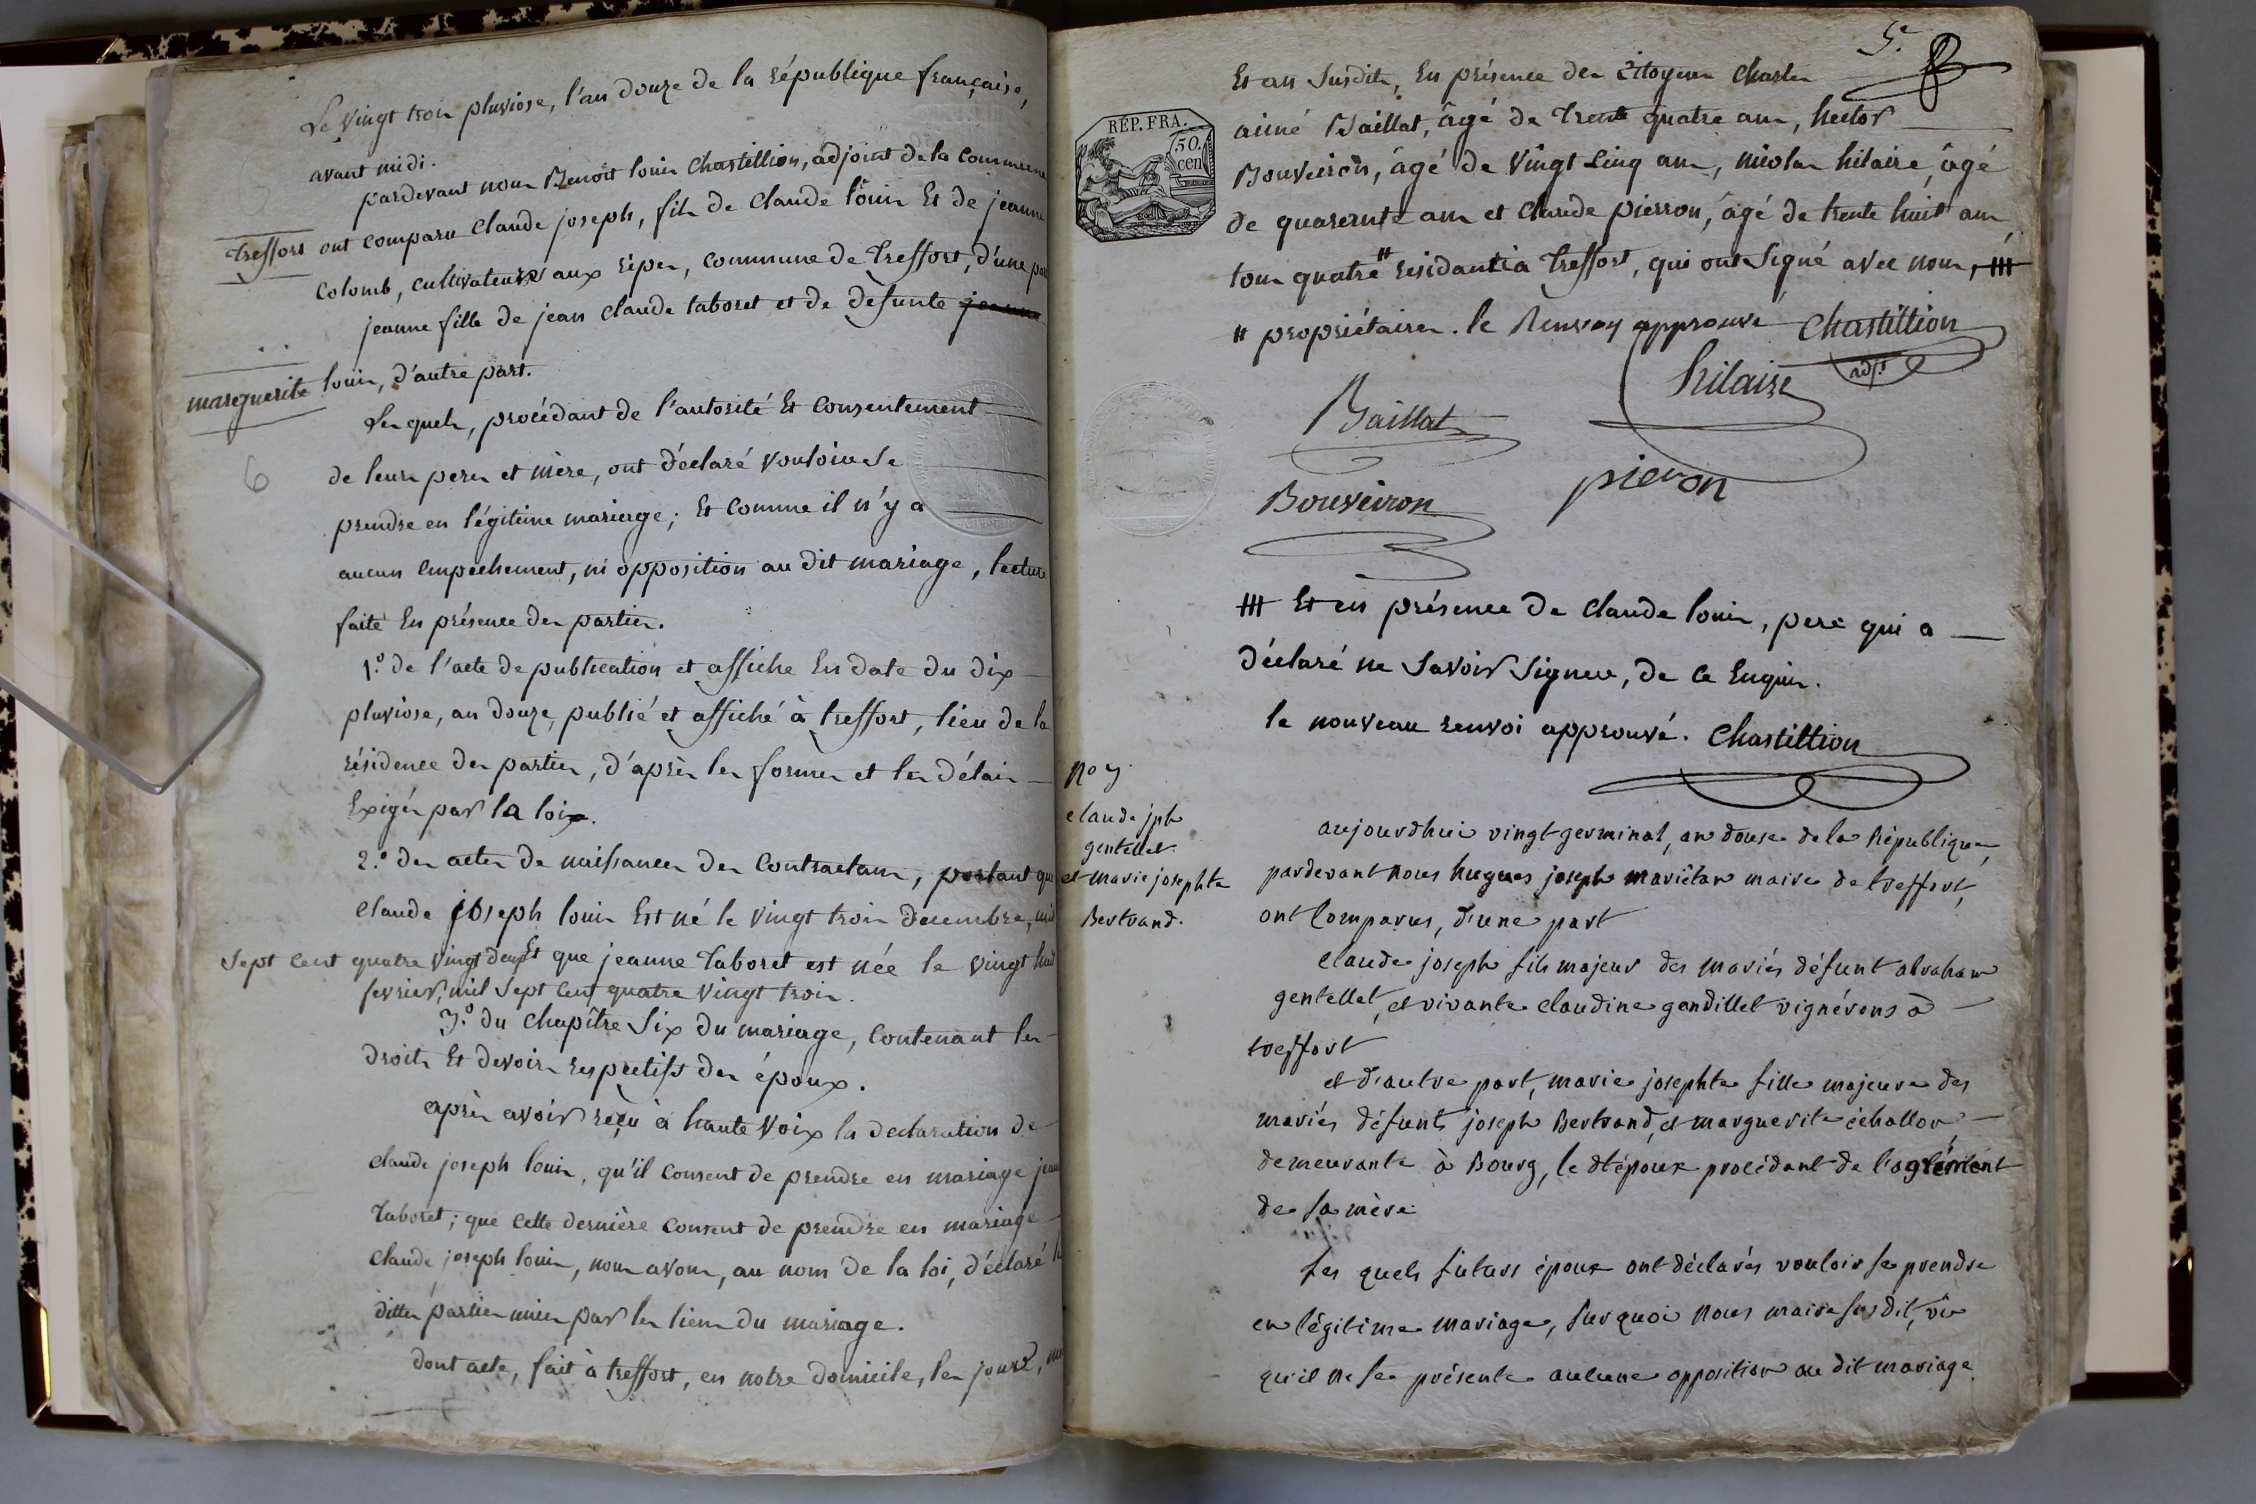 Le vingt trois pluviose, l'an douze de la république française,
avant midi.
pardevant nous Benoît louis Chastillion, adjoint de la commune
treffort ont comparu Claude joseph, fils de Claude louis Et de jeanne
Colomb, cultivateurs aux ripes, commune de treffort, d'une part
jeanne fille de jean Claude taboret et de défunte jeanne
marguerite louis, d'autre part.
Les quels, procédant de l'autorité Et consentement
6
de leurs peres et mère, ont déclaré vouloir se
prendre en légitime mariage; Et comme il n'y a
aucun empechement, ni opposition au dit mariage, lecture
faite En présence des parties.
1.º de l'acte de publication et affiche En date du dix
pluviose, an douze, publié et affiché à treffort, lieu de la
résidence des parties, d'après les formes et les délais
Exigés par la loix.
2.º des actes de naissances des Contractans, portant que
Claude joseph louis Est né le vingt trois decembre, mil
sept cent quatre vingt deux Et que jeanne taboret est née le vingt huit
fevrier, mil sept cent quatre vingt trois.
3.º du chapître six du mariage, contenant les
droits Et devoirs respectifs des époux.
après avoir reçu à haute voix la declaration de
claude joseph louis, qu'il consent de prendre en mariage
taboret; que cette dernière consent de prendre en mariage
Claude joseph louis, nous avons, au nom de la loi, déclaré
dittes parties unies par les liens du mariage.
dont acte, fait à treffort, en notre domicile, les jours,
5.e
Et an susdits, En présence des citoyens charles
RÉP. FRA.
50.
cen
aimé Baillat, âgé de trente quatre ans, hector
Bouveiron, âgé de vingt cinq ans, nicolas hilaire, âgé
de quarente ans et Claude pierron, âgé de trente huit ans
tous quatre # residants à treffort, qui ont signé avec nous,
# propriétaires. le Renvoy approuvé Chastillion
adjt
hilaire
Baillat
pieron
Bouveiron
Et en présence de Claude louis, pere qui a
déclaré ne savoir signer, de ce Enquis.
le nouveau renvoi approuvé. Chastillion
claude jph
gentellet
et marie josephte
Bertrand.
aujourdhui vingt germinal, an douse de la République,
pardevant nous hugues joseph mariëtan maire de treffort,
ont Comparus, d'une part
claude joseph fils majeur des mariés défunt abraham
gentellet, et vivante claudine gandillet vignérons à
treffort
et d'autre part, marie josephte fille majeure des
mariés défunts joseph Bertrand, et marguerite échallon
demeurante à Bourg, le dt époux procédant de l'agrément
de sa mère
Les quels futurs époux ont déclarés vouloir se prendre
en légitime mariage, sur quoi nous maire susdit, vû
qu'il ne se présente aucune opposition au dit mariage